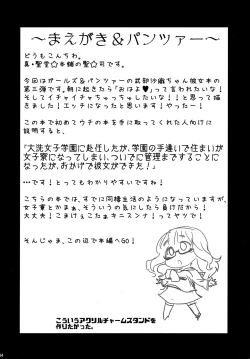 ～まえがき＆パンツァー～
どうもこんちわ。
真・聖堂☆本舗の聖☆司です。
今回はガールズ＆パンツァーの武部沙織ちゃん彼女本の
第二弾です。朝に起きたら「おはよ♥」って言われたいな！
そしてイチャイチャちゅっちゅしたいな！！と思って描き
ました！エッチになったと思います！やったー！
この本で初めてウチの本を手に取ってくれた人向けに
説明すると、
「大洗女子学園に赴任したが、学園の手違いで住まいが
女子寮になってしまい、ついでに管理まですることに
なったが、おかげで彼女ができた！」
…です！とってもわかりやすいですね！
こちらの本では、すでに同棲生活のようになっていますが、
女子寮とかまぁ、そういうの気にしたら負けだから！
大丈夫！こまけぇこたぁキニスンナ！ってヤツで！
そんじゃま、この辺で本編へGO！
こういうアクリルチャームスタンドを
作りたかった。